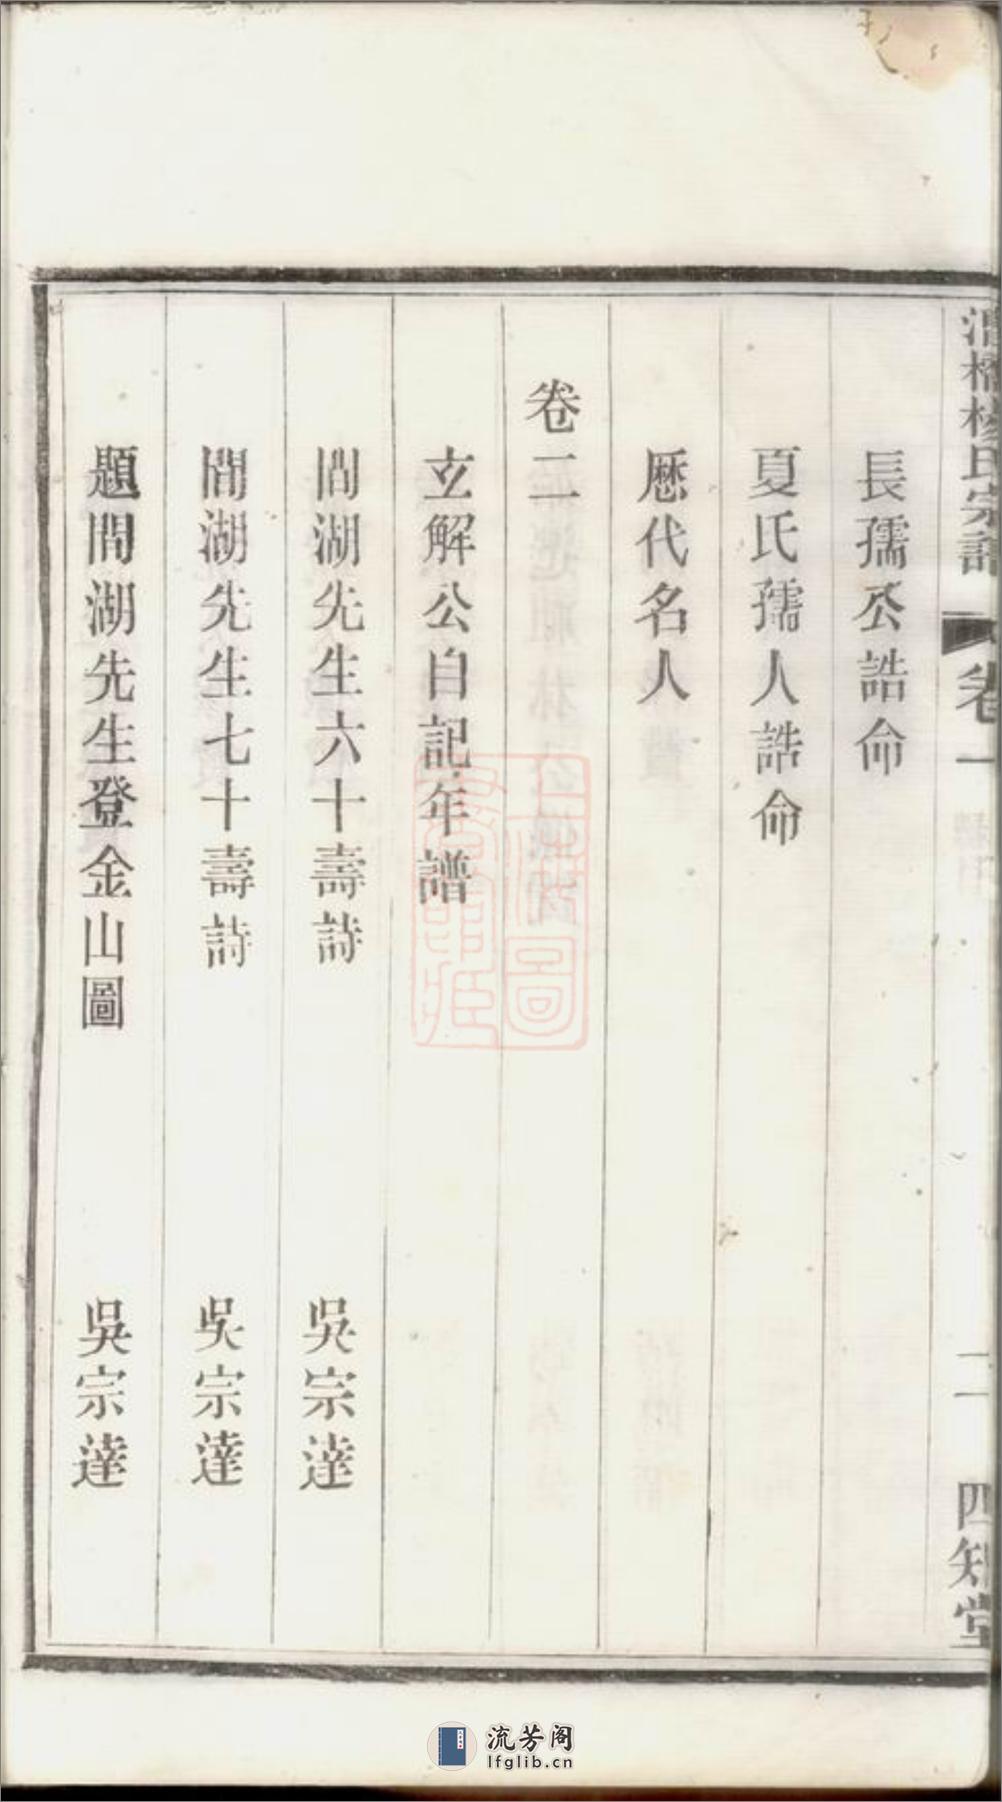 渭橋楊氏宗譜 卷一 二 四知堂
長孺公誥命
夏氏孺人誥命
歷代名人
卷二
玄解公自記年譜
問湖先生六十壽詩 吳宗達
間湖先生七十壽詩 吳宗達
題問湖先生登金山圖 吳宗達
流芳阁
lfglib.cn